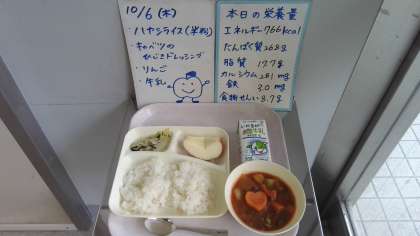 10/6 (木)
・ハヤシライス (米粉)
・キャベツの
ひじきドレッシング
・りんご
・牛乳
本日の栄養量
エネルギー 766kcal
たんぱく質 26.8g
脂質 17.7g
カルシウム 281 mg
鉄 3.0 mg
食物せんい 8.7g